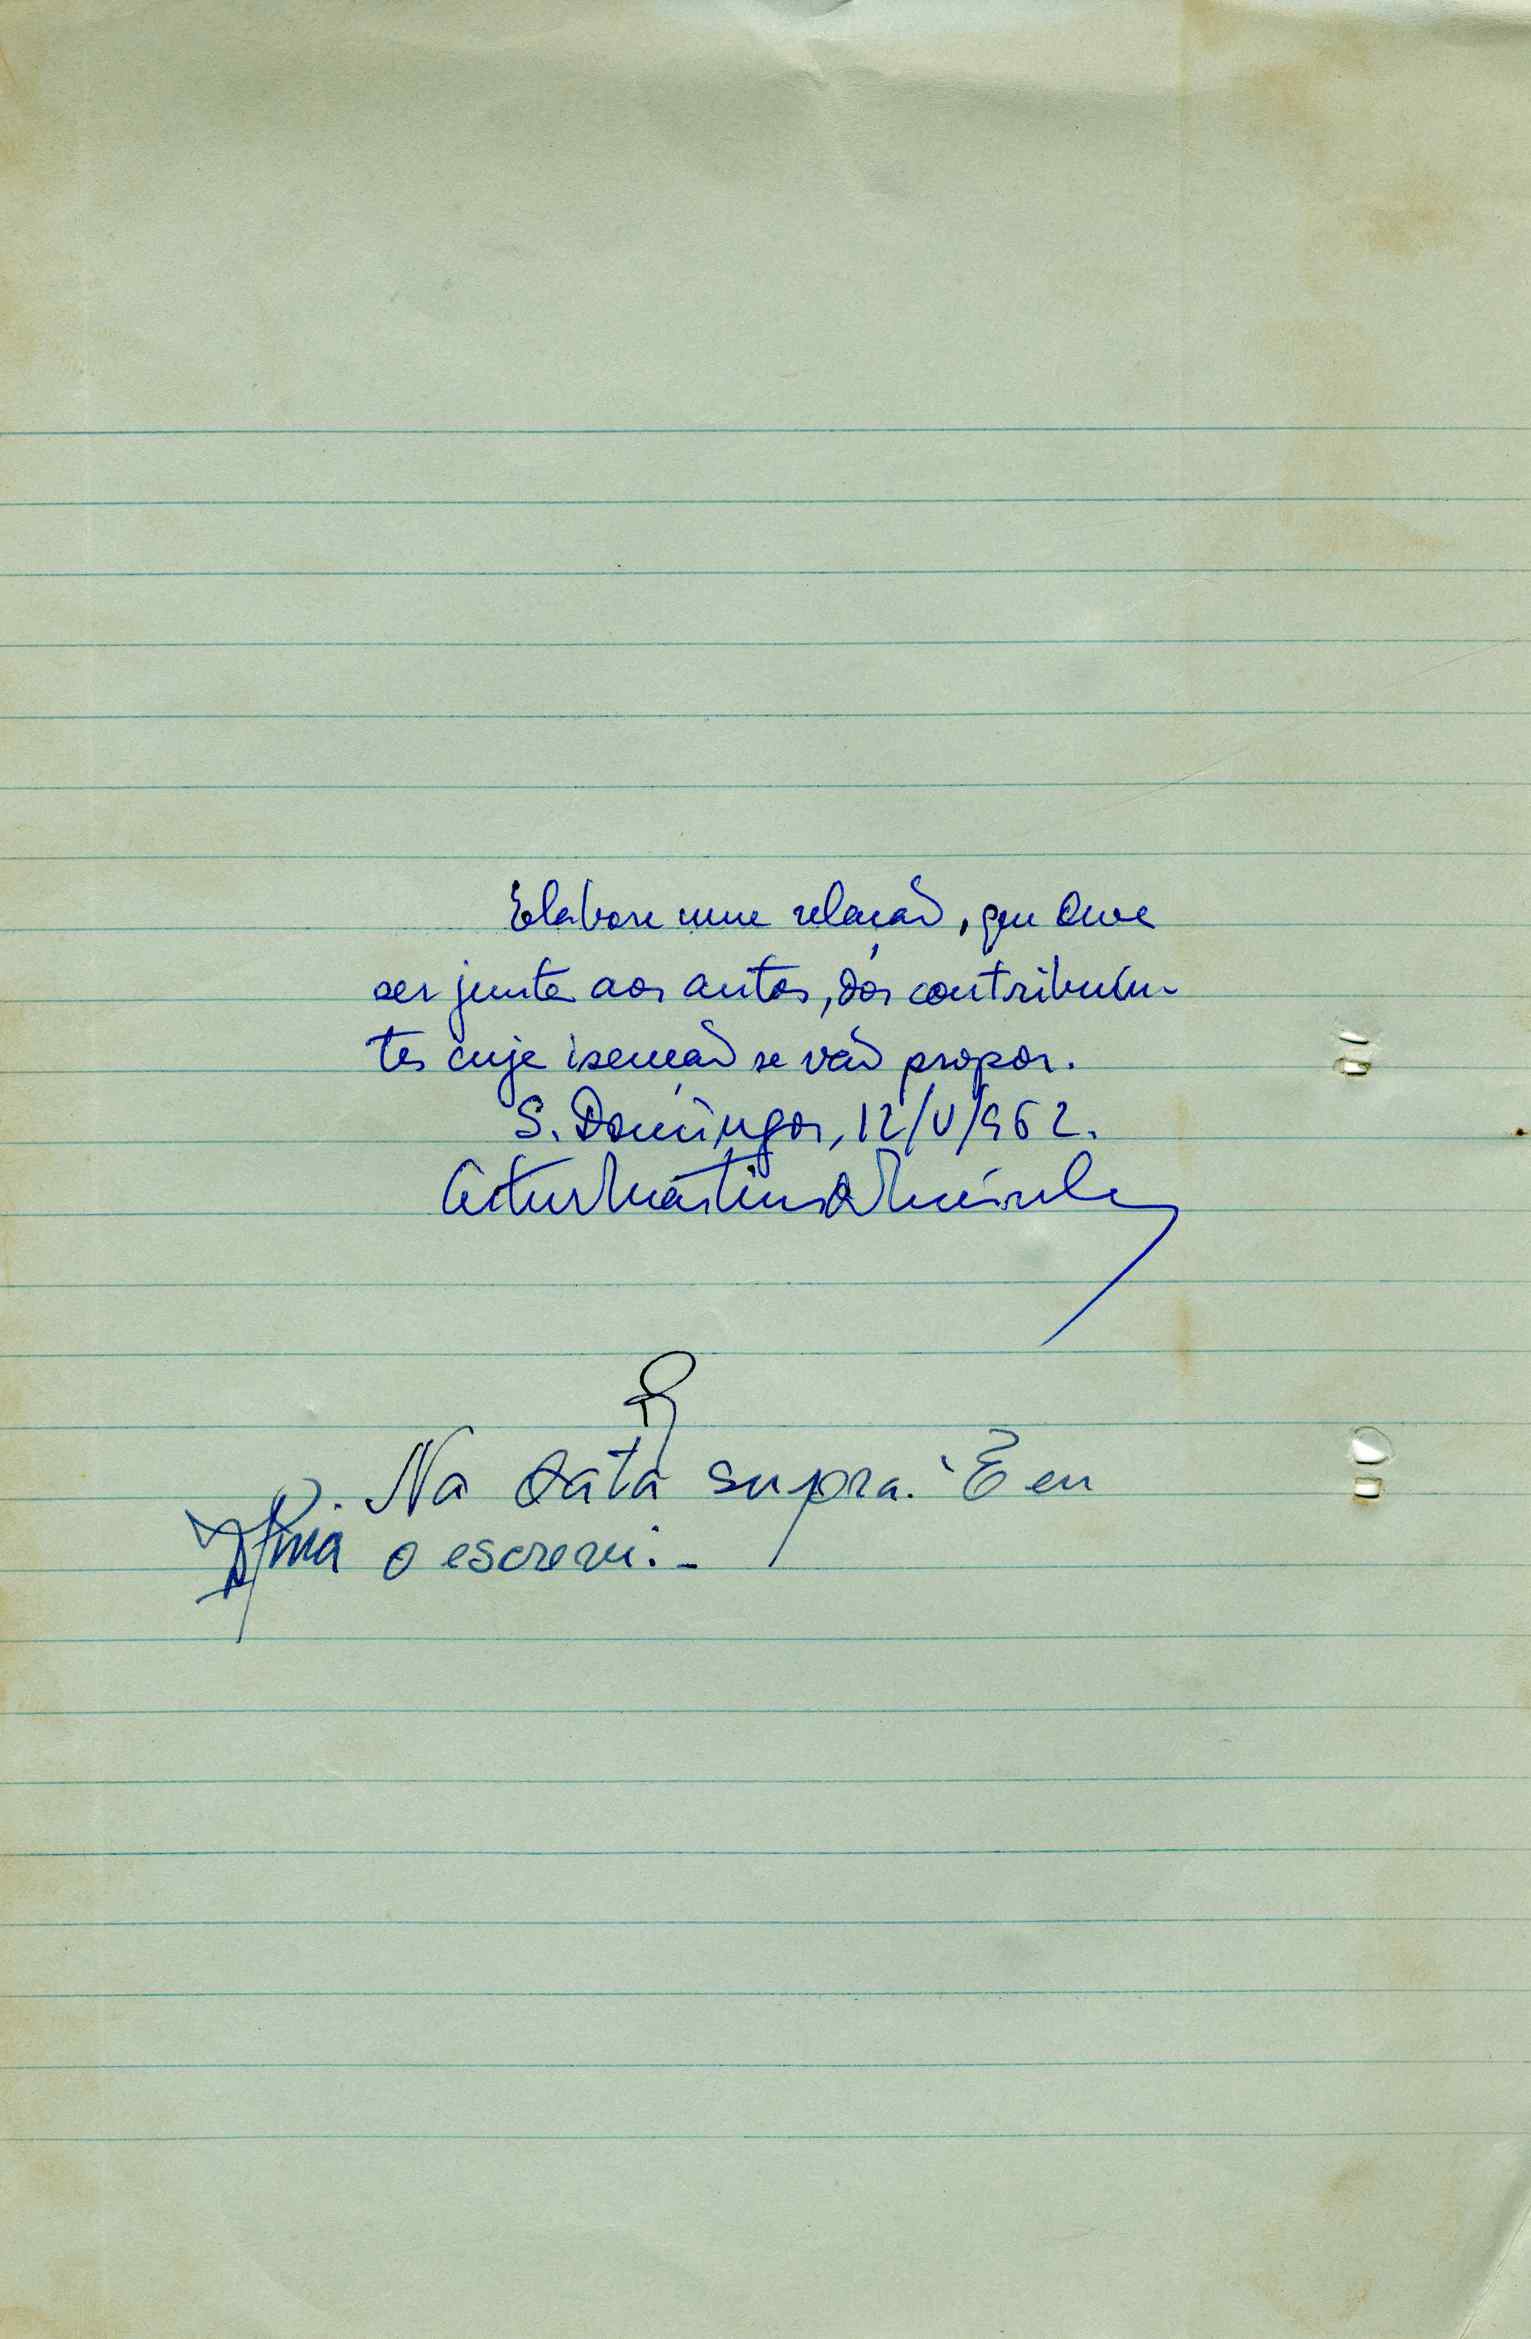 Elabore uma relação, que deve
ser junta aos autos, dos contribuin-
tes cuja isenção se vão propor.
S. Domingos, 12/V/962.
Artur Martins de Meireles
D. Na data supra. E eu
o escrevi.-